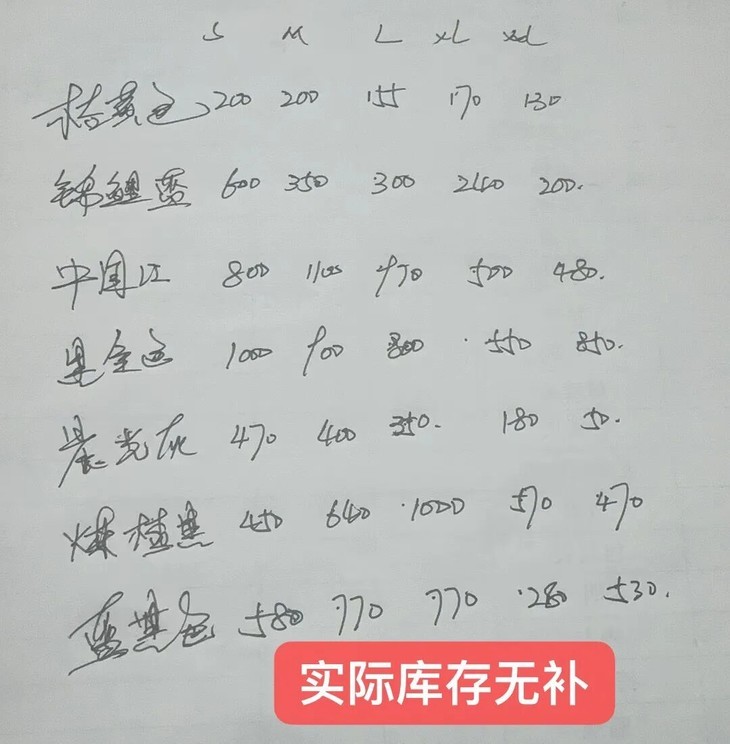 S M L XL XXL
桔黄色 200 200 155 170 130
锦鲤蓝 600 350 300 240 200.
中国红 800 1100 970 500 480.
黑金色 1000 900 800 550 850.
晨光灰 470 400 350. 180 50.
450 640 1000 570 470
色 580 770 770 280 530.
实际库存无补